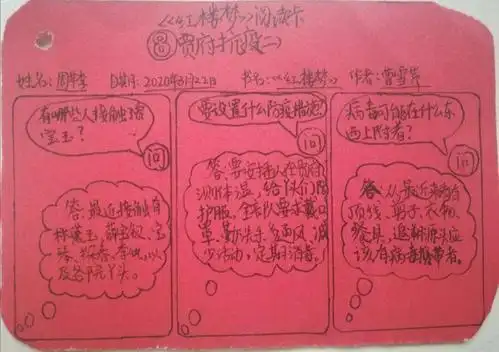 《《红楼梦》》阅读卡
⑧贾府抗疫二)
姓名:周苹季 日期:2020年3月22日 书名:《《红楼梦》》 作者:曹雪芹
有哪些人接触过
宝玉?
问
答:最近接触有
林黛玉、薛宝钗、宝
琴、探春、
及各房丫头。
要设置什么防疫措施
问
答:要安排人在贾府
测体温,给丫头们
护服,全部人要求戴口
罩、勤洗手、多通风、减
少活动,定期消毒。
病毒可能在什么东
西上附着?
问
答:从最近来看有
项线、帕子、衣物、
餐具,追溯源头应
该有病毒携带者。